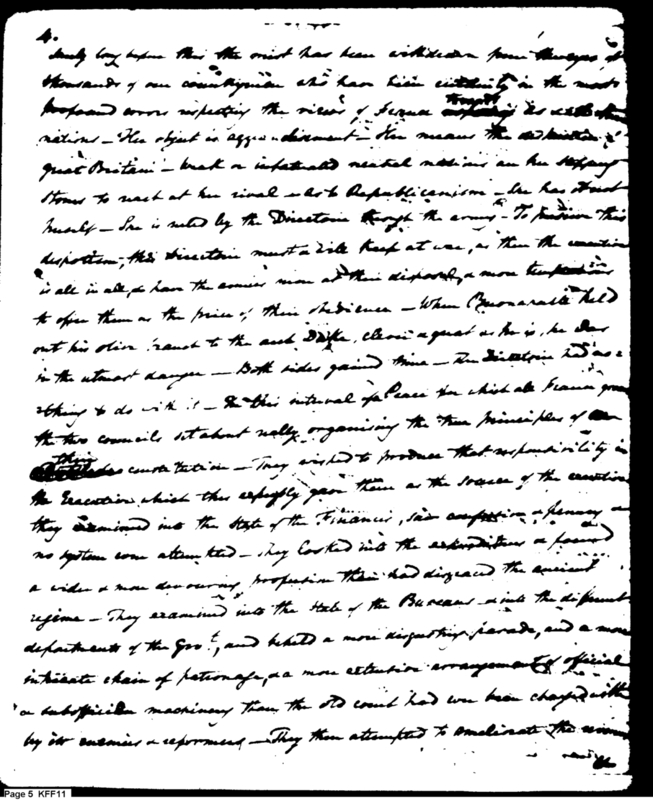 4.
Surely long before this the mist has been withdrawn from the eyes of
thousands of our countrymen who have been entirely in the most
profound errors respecting the views of France towards as other
nations – Her object is aggrandisement – Her means the destruction of
great Britain – Weak or infatuated neutral nations are her stepping
stones to reach at her rival – As to Republicanism – She has it not
herself – She is ruled by the Directoire through the army – To this
despotism, the Directoire must keep at war, as then the executive
is all in all, & have the armies more at their disposal, & more temptations
to offer them as the price of their obedience – When Buonaparte held
out his olive branch to the arch Duke, clever & great as he is, he was
in the utmost danger – Both sides gained time – The Directoire had
nothing to do with it – In this interval of a Peace for which all France
the two councils set about really organising the true principles of
their constitution – They wished to produce that responsibility in
the Executive which this expressly gave them as the source of the executive
they examined into the State of the Finances, saw confusion & penury &
no system even attempted – They looked into the expenditure & found
a wider & more devouring profusion than had disgraced the ancient
regime – They examined into the State of the Bureaus & into the different
departments of the Govt., and beheld a more disgusting parade, and a more
intricate chain of patronage, & a more extensive arrangement of official
& subofficial machinery than the old court had ever been charged with
by its enemies & reformers – They then attempted to ameliorate the
Page 5 KFF11